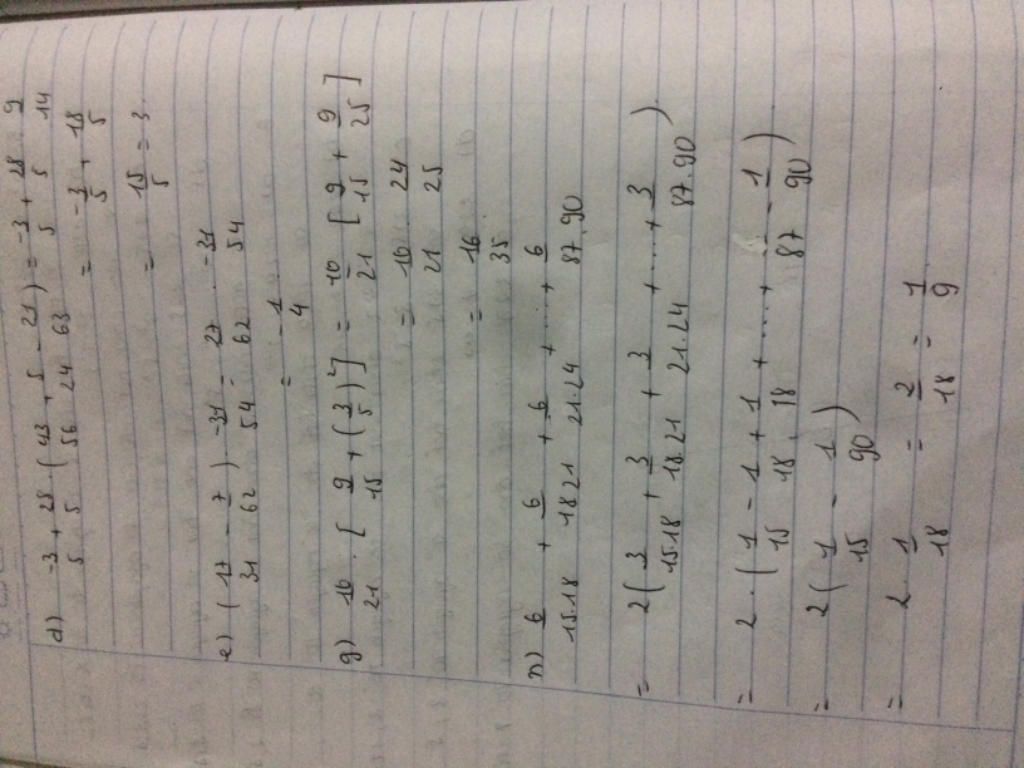 d) -3/5 + 28/5 (43/56 + 5/24 - 21/63) = -3/5 + 28/5 . 9/14
= -3/5 + 18/5
= 15/5 = 3
e) (17/31 - 7/62) . -31/54 = 27/62 . -31/54
= -1/4
g) 10/21 . [9/15 + (3/5)²] = 10/21 [9/15 + 9/25]
= 10/21 . 24/25
= 16/35
n) 6/15.18 + 6/18.21 + 6/21.24 + .... + 6/87.90
= 2 (3/15.18 + 3/18.21 + 3/21.24 + .... + 3/87.90)
= 2 . (1/15 - 1/18 + 1/18 + .... + 1/87 - 1/90)
= 2 (1/15 - 1/90)
= 2 . 1/18 = 2/18 = 1/9